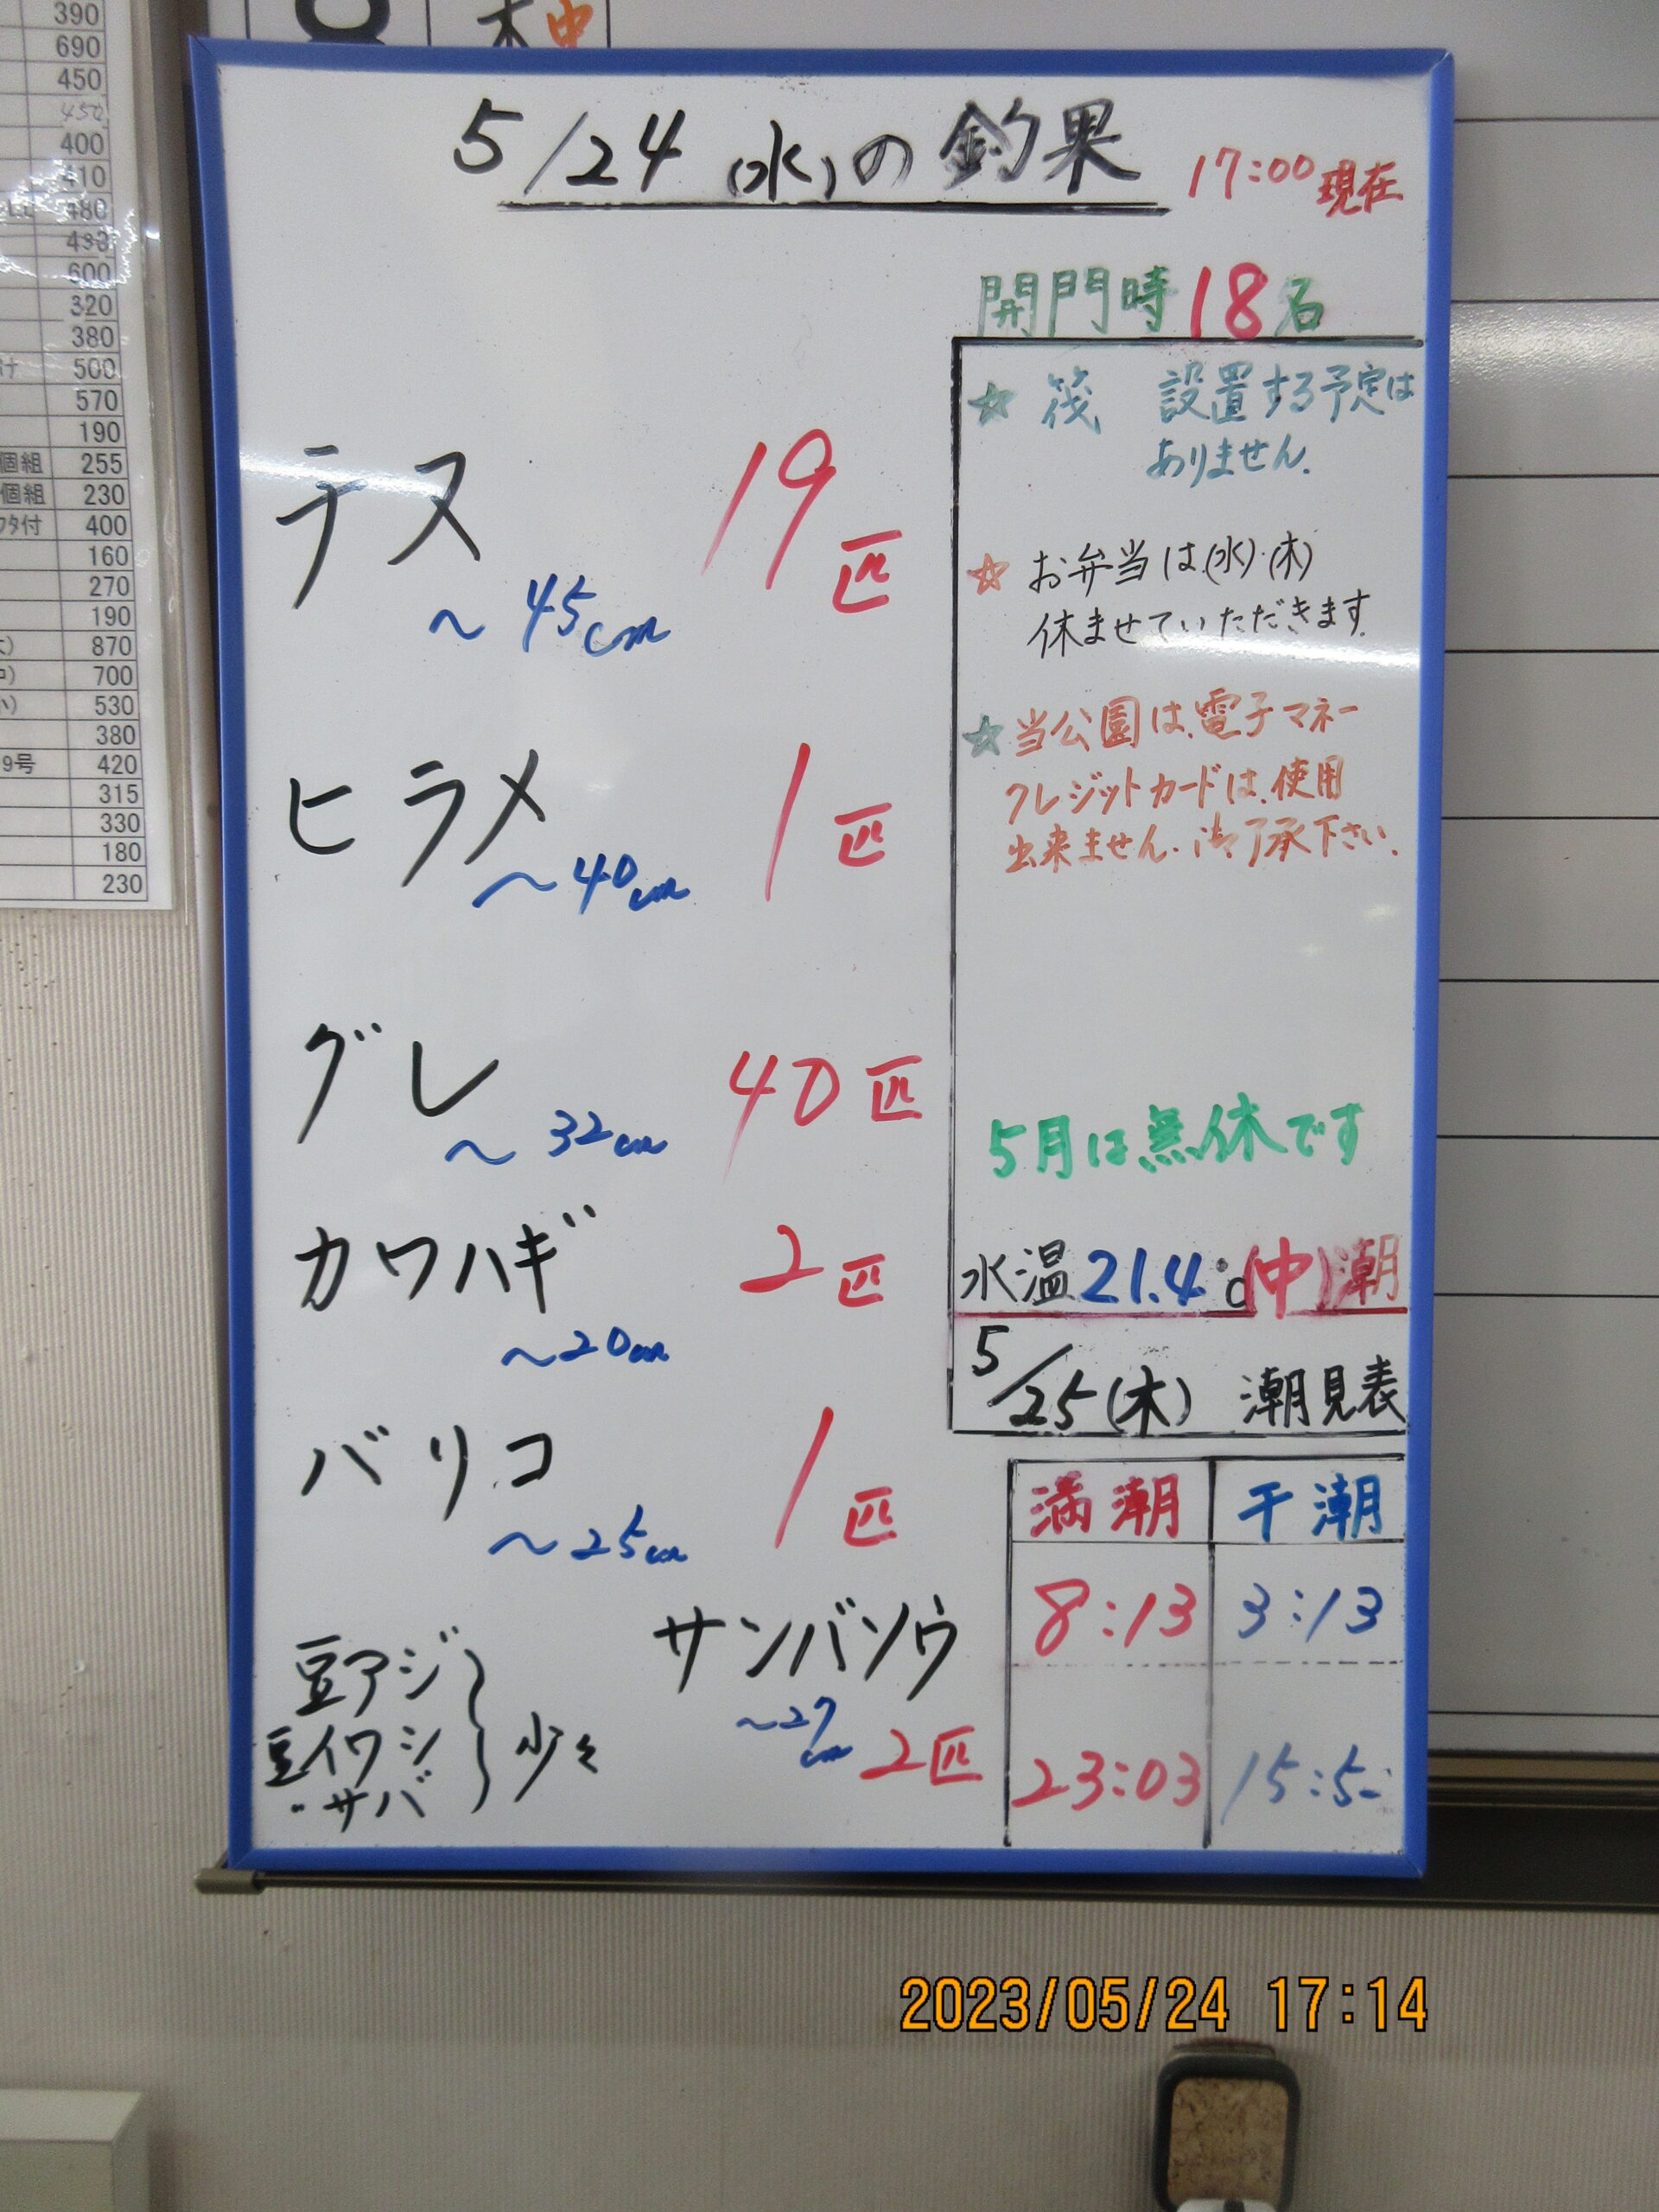 390
690
450
450
400
410
480
493
600
320
380
500
570
190
個組 255
個組 230
フタ付 400
160
270
190
870
700
530
380
9号 420
315
330
180
230
木 中
5/24 (水)の釣果 17:00現在
開門時 18名
☆ 筏 設置する予定は
ありません.
☆ お弁当は(水)・(木)
休ませていただきます.
☆ 当公園は、電子マネー
クレジットカードは、使用
出来ません. 御了承下さい.
5月は無休です
水温 21.4℃ (中)潮
5/25(木) 潮見表
満潮 干潮
8:13 3:13
23:03
テス 19匹
~45cm
ヒラメ 1匹
~40cm
グレ 40匹
~32cm
カワハギ 2匹
~20cm
バリコ 1匹
~25cm
豆アジ
豆イワシ 少々
〃サバ
サンバソウ
~27cm 2匹
2023/05/24 17:14